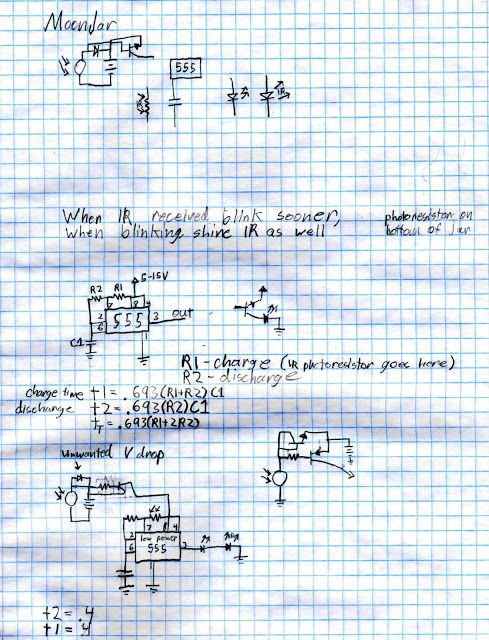 MoonJar
555
IR
When IR received blink sooner,
when blinking shine IR as well
photoresistor on
bottom of jar
5-15V
R2 R1
7 8 4
2
6
555
3 out
C1
R1-charge (IR photoresistor goes here)
R2-discharge
charge time t1=.693(R1+R2)C1
discharge t2=.693(R2)C1
tT=.693(R1+2R2)
unwanted V drop
7 8 4
2
6
low power
555
3
t2=.4